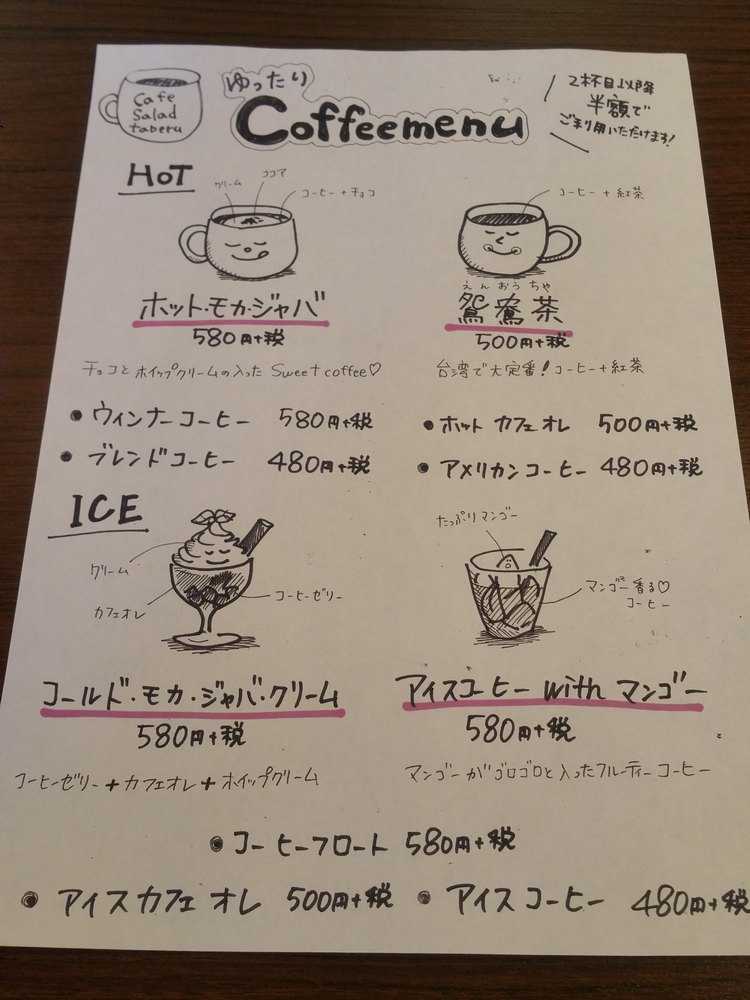 Cafe
Salad
taberu
ゆったり
Coffeemenu
2杯目以降
半額で
ご利用いただけます!
HOT
クリーム
ココア
コーヒー+チョコ
コーヒー+紅茶
ホット・モカ・ジャバ
580円+税
チョコとホイップクリームの入った Sweet coffee♡
えんおうちゃ
鴛鴦茶
500円+税
台湾で大定番!コーヒー+紅茶
• ウィンナーコーヒー 580円+税
• ホット カフェオレ 500円+税
• ブレンドコーヒー 480円+税
• アメリカンコーヒー 480円+税
ICE
クリーム
カフェオレ
コーヒーゼリー
たっぷりマンゴー
マンゴー香る♡
コーヒー
コールド・モカ・ジャバ・クリーム
580円+税
コーヒーゼリー+カフェオレ+ホイップクリーム
アイスコーヒー with マンゴー
580円+税
マンゴーがゴロゴロと入ったフルーティーコーヒー
• コーヒーフロート 580円+税
• アイスカフェオレ 500円+税
• アイスコーヒー 480円+税